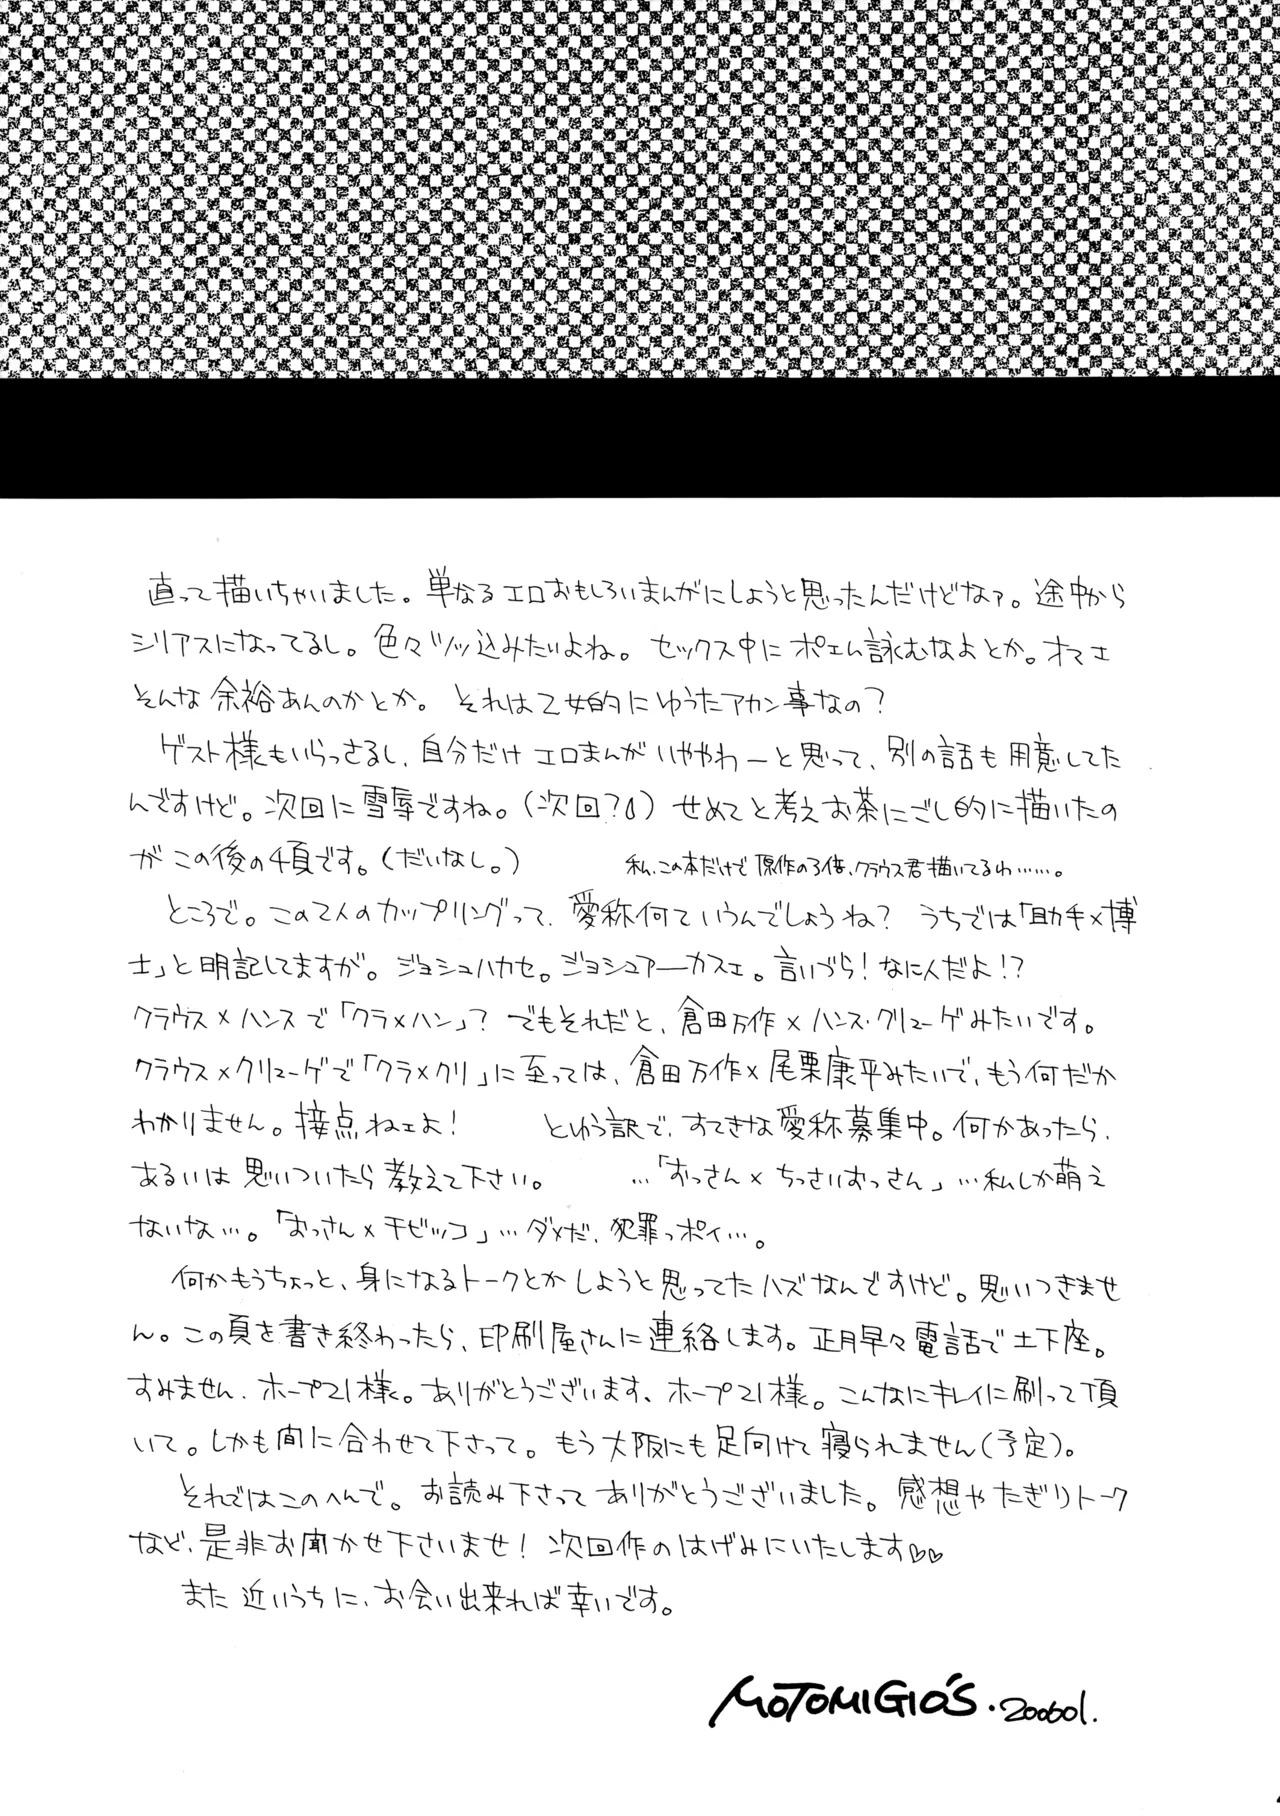 直って描いちゃいました。単なるエロおもしろいまんがにしようと思ったんだけどなァ。途中から
シリアスになってるし。色々ツッ込みたいよね。セックス中にポエム詠むなよとか。オマエ
そんな余裕あんのかとか。それは乙女的にゆうたアカン事なの？
ゲスト様もいらっさるし、自分だけエロまんがいややわーと思って、別の話も用意してた
んですけど。次回に雪辱ですね。(次回？)せめてと考えお茶にごし的に描いたの
がこの後の4頁です。(だいなし。)
私、この本だけで原作の3倍、クラウス君描いてるわ……。
ところで。この2人のカップリングって、愛称何ていうんでしょうね？うちでは「助手×博
士」と明記してますが。ジョシュハカセ。ジョシュアーカスェ。言いづら！なに人だよ！？
クラウス×ハンスで「クラ×ハン」？でもそれだと、倉田万作×ハンス・クリューゲみたいです。
クラウス×クリューゲで「クラ×クリ」に至っては、倉田万作×尾栗康平みたいで、もう何だか
わかりません。接点ねェよ！　という訳で、すてきな愛称募集中。何かあったら、
あるいは思いついたら教えて下さい。　…「おっさん×ちっさいおっさん」…私しか萌え
ないな…。「おっさん×チビッコ」…ダメだ、犯罪っポイ…。
何かもうちょっと、身になるトークとかしようと思ってたハズなんですけど。思いつきませ
ん。この頁を書き終わったら、印刷屋さんに連絡します。正月早々電話で土下座。
すみません、ホープ21様。ありがとうございます、ホープ21様。こんなにキレイに刷って頂
いて。しかも間に合わせて下さって。もう大阪にも足向けて寝られません(予定)。
それではこのへんで。お読み下さってありがとうございました。感想やたぎりトーク
など、是非お聞かせ下さいませ！次回作のはげみにいたします♡♡
また近いうちに、お会い出来れば幸いです。
MOTOMIGIO'S・200601.